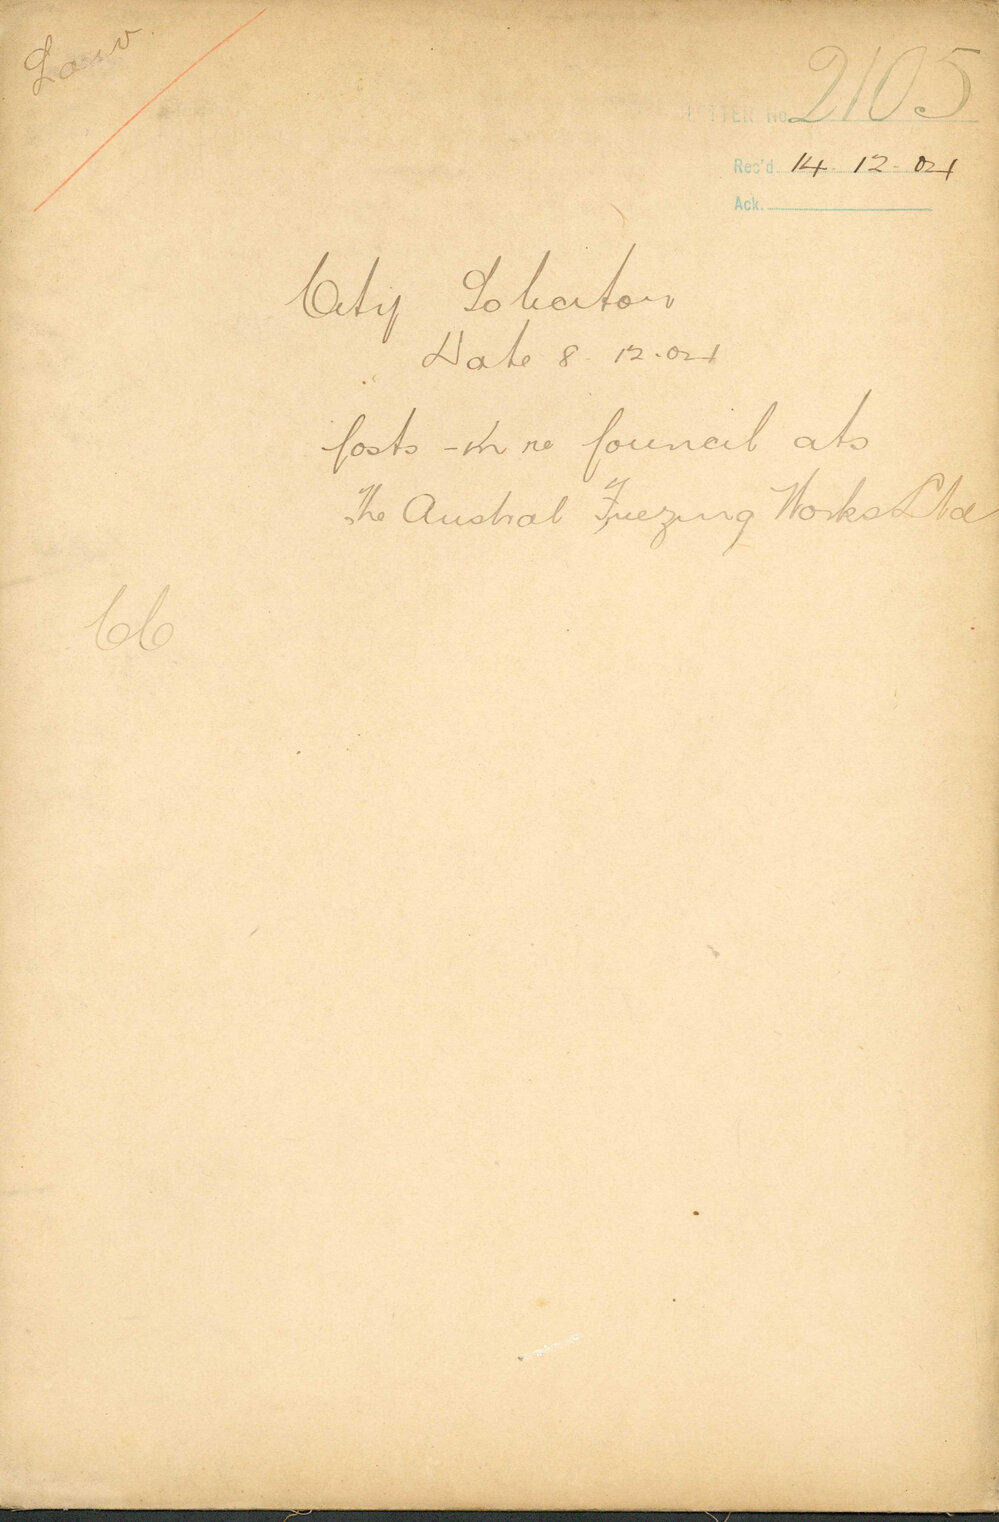 Law
LETTER No. 2105
Rec'd. 14. 12. 04
Ack.
City Solicitor
Date 8. 12. 04
Costs - In re Council ats
The Austral Freezing Works Ltd
CC